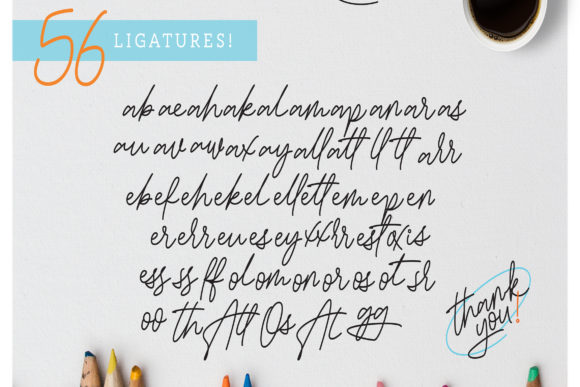 56 LIGATURES!
ab ae ah ak al am ap an ar as
au av aw ax ay all att ll tt arr
eb ef eh ek el ell ett em ep en
er err eu es ey xx rr est ox is
ess ss ff ol om on or os ot sr
oo th All Os At gg
thank
you!